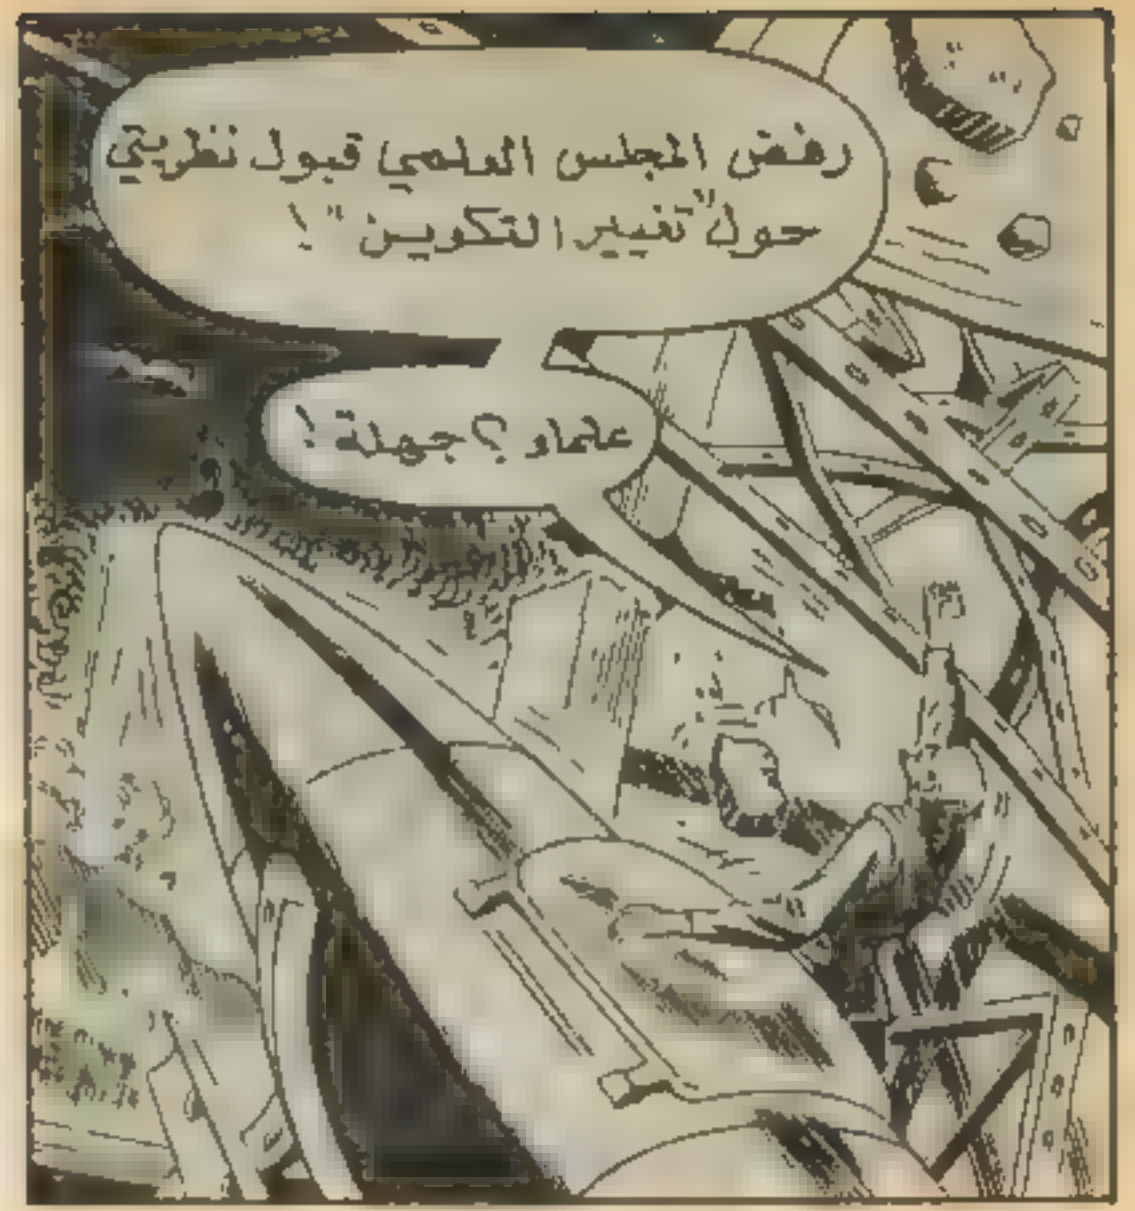 رفض المجلس العلمي قبول نظريتي
حول "تغيير التكوين" !
علماء ؟ جهلة !